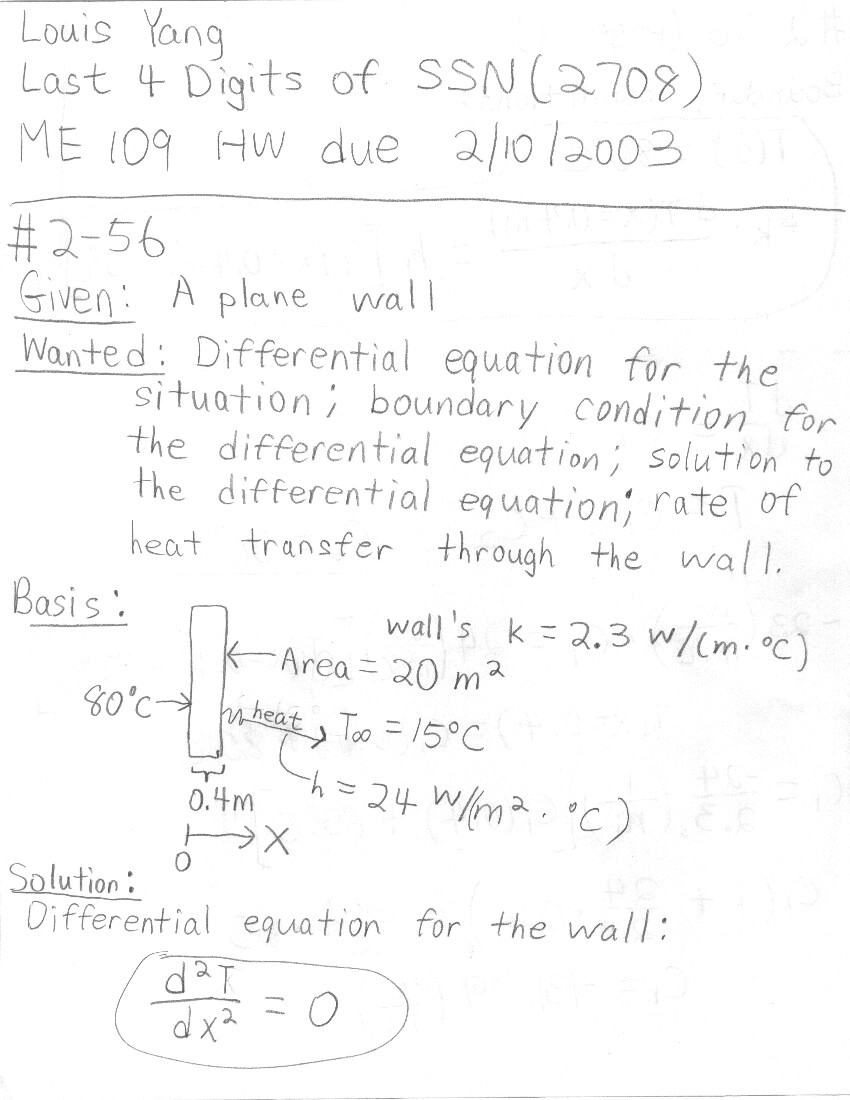 Louis Yang
Last 4 Digits of SSN (2708)
ME 109 HW due 2/10/2003
#2-56
Given: A plane wall
Wanted: Differential equation for the
situation; boundary condition for
the differential equation; solution to
the differential equation; rate of
heat transfer through the wall.
Basis:
wall's k = 2.3 W/(m·°C)
Area = 20 m²
80°C
heat
T∞ = 15°C
0.4m
h = 24 W/(m²·°C)
0
X
Solution:
Differential equation for the wall:
d²T/dx² = 0